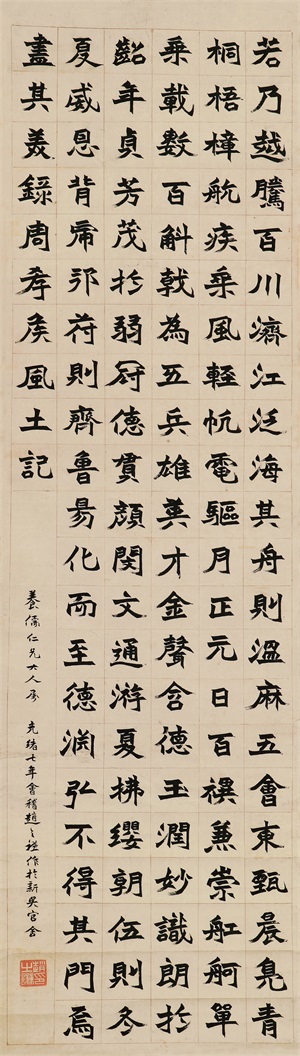 若乃越騰百川濟江泛海其舟則溫麻五會東甄晨鳧青
桐梧樟航疾乘風輕帆電驅月正元日百禩兼崇舡舸單
乘載數百斛戟為五兵雄英才金聲含德玉潤妙識朗於
齠年貞芳茂於弱冠德貫顔閔文通游夏拂纓朝伍則冬
夏威恩背帝邦苻則齊魯易化而至德淵弘不得其門焉
盡其美錄周孝侯風土記
養儒仁兄大人屬 光緒七年會稽趙之謙作於新吳官舍